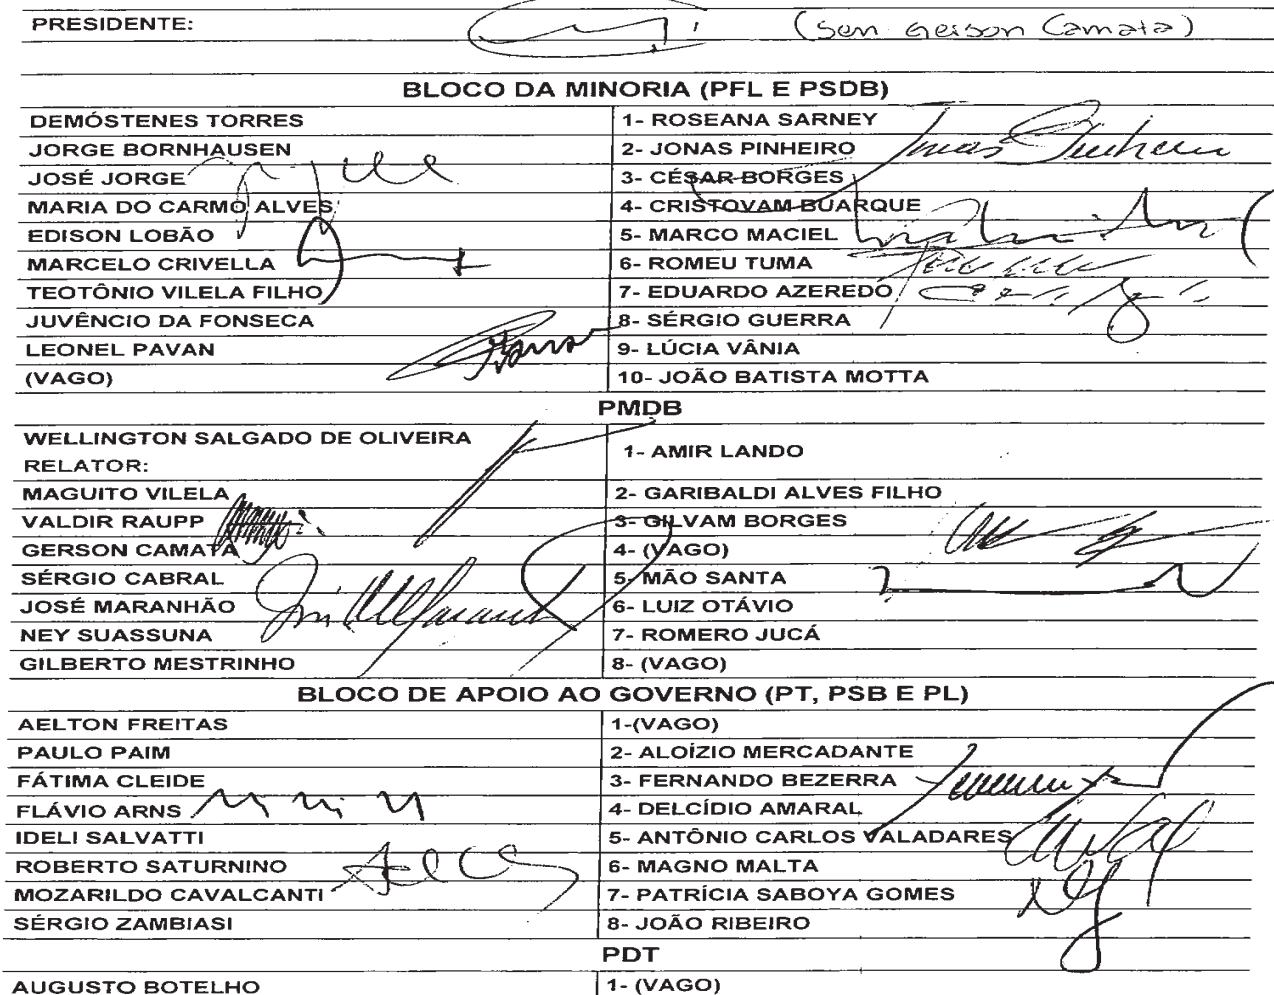 PRESIDENTE: (Sen Gerson Camata)
BLOCO DA MINORIA (PFL E PSDB)
DEMÓSTENES TORRES 1- ROSEANA SARNEY
JORGE BORNHAUSEN 2- JONAS PINHEIRO Jonas Pinheiro
JOSÉ JORGE 3- CÉSAR BORGES
MARIA DO CARMO ALVES 4- CRISTOVAM BUARQUE
EDISON LOBÃO 5- MARCO MACIEL
MARCELO CRIVELLA 6- ROMEU TUMA
TEOTÔNIO VILELA FILHO 7- EDUARDO AZEREDO
JUVÊNCIO DA FONSECA 8- SÉRGIO GUERRA
LEONEL PAVAN 9- LÚCIA VÂNIA
(VAGO) 10- JOÃO BATISTA MOTTA
PMDB
WELLINGTON SALGADO DE OLIVEIRA
RELATOR: 1- AMIR LANDO
MAGUITO VILELA 2- GARIBALDI ALVES FILHO
VALDIR RAUPP 3- GILVAM BORGES
GERSON CAMATA 4- (VAGO)
SÉRGIO CABRAL 5- MÃO SANTA
JOSÉ MARANHÃO 6- LUIZ OTÁVIO
NEY SUASSUNA 7- ROMERO JUCÁ
GILBERTO MESTRINHO 8- (VAGO)
BLOCO DE APOIO AO GOVERNO (PT, PSB E PL)
AELTON FREITAS 1-(VAGO)
PAULO PAIM 2- ALOÍZIO MERCADANTE
FÁTIMA CLEIDE 3- FERNANDO BEZERRA
FLÁVIO ARNS 4- DELCÍDIO AMARAL
IDELI SALVATTI 5- ANTÔNIO CARLOS VALADARES
ROBERTO SATURNINO 6- MAGNO MALTA
MOZARILDO CAVALCANTI 7- PATRÍCIA SABOYA GOMES
SÉRGIO ZAMBIASI 8- JOÃO RIBEIRO
PDT
AUGUSTO BOTELHO 1- (VAGO)